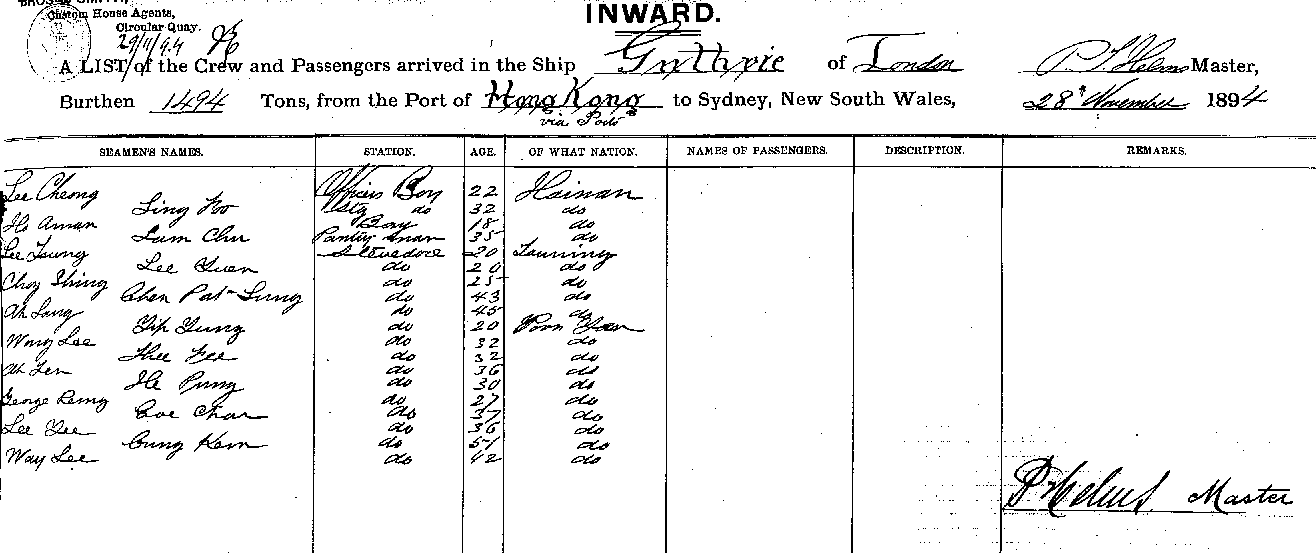 Custom House Agents,
Circular Quay.
29/11/94
INWARD.
A LIST of the Crew and Passengers arrived in the Ship Guthrie of London P. Helms Master,
Burthen 1494 Tons, from the Port of Hong Kong to Sydney, New South Wales, 28th November 1894
via Ports
SEAMEN'S NAMES. STATION. AGE. OF WHAT NATION. NAMES OF PASSENGERS. DESCRIPTION. REMARKS.
Lee Cheong Officers Boy 22 Hainan
Ling do 32 do
Ho Aman Boy 18 do
Lam Chu Pantry man 35 do
Lee Young Stevedore 20
Lee Yuen do 20 do
Choy Shing do 25 do
Chen Pat Sung do 43 do
Ah Long do 45 do
Yip Yung do 20
Wong Lee do 32 do
do 32 do
Ah Len do 36 do
He Pung do 30 do
George do 27 do
Char do 37 do
Lee Yee do 36 do
Cung Kem do 51 do
Way Lee do 42 do
P Helms Master